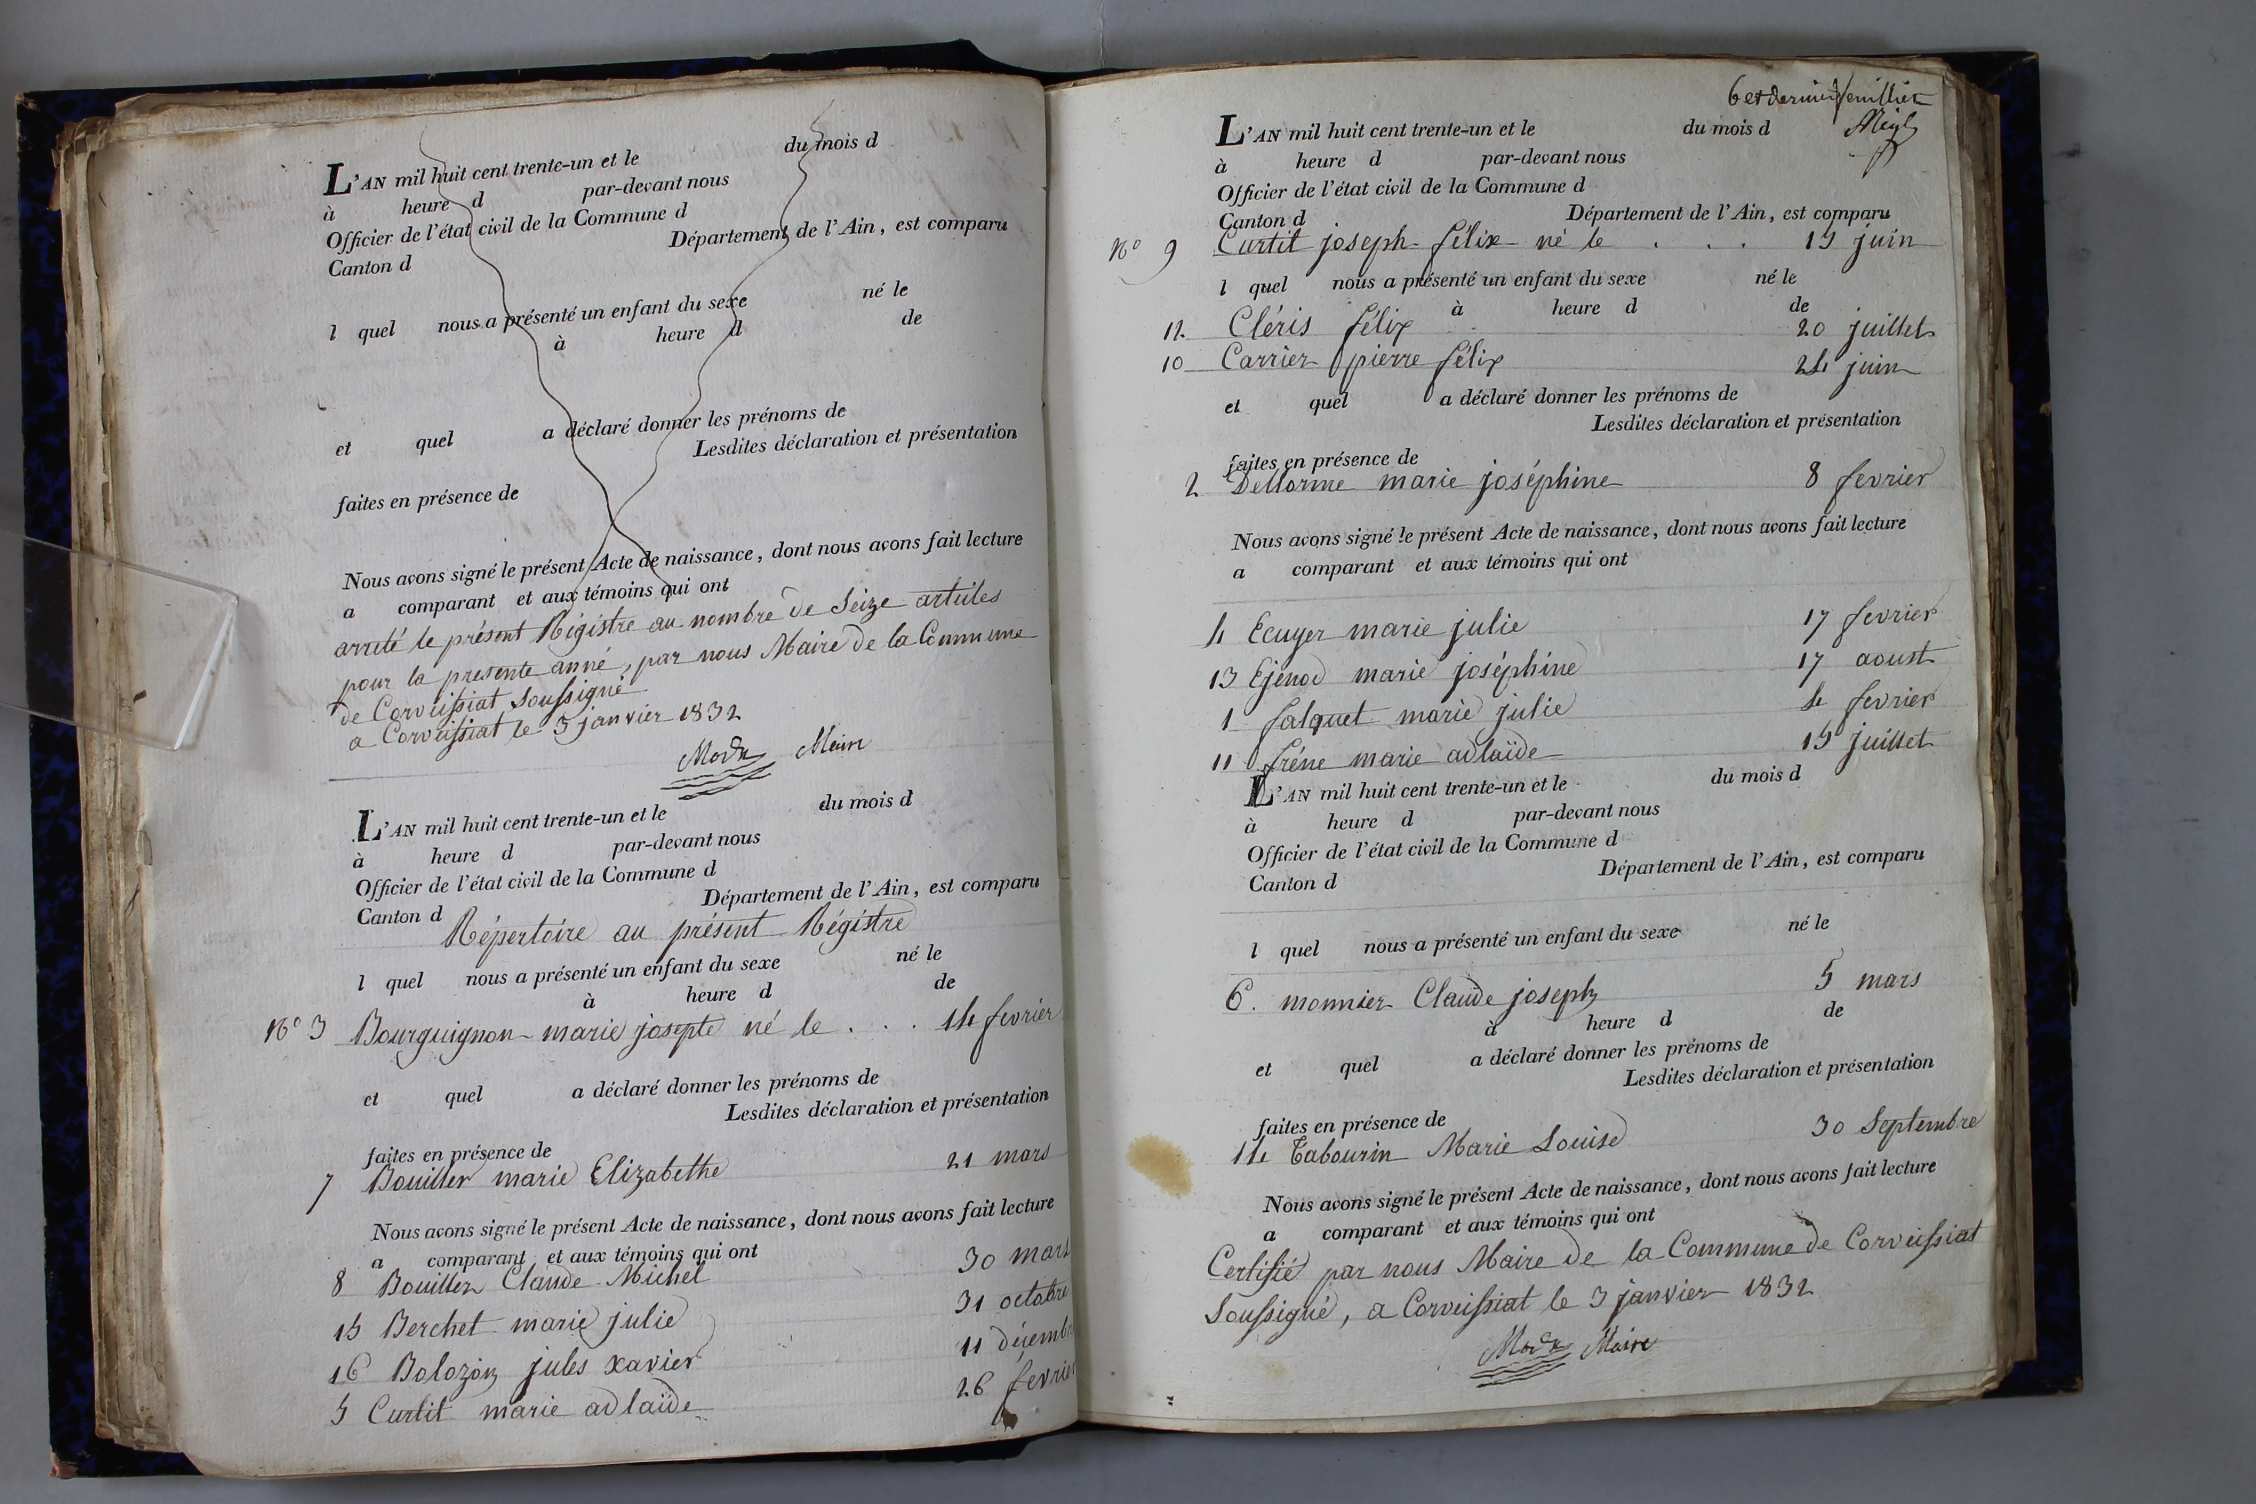 L'AN mil huit cent trente-un et le du mois d
à heure d par-devant nous
Officier de l'état civil de la Commune d
Canton d Département de l'Ain, est comparu
l quel nous a présenté un enfant du sexe né le
à heure d de
et quel a déclaré donner les prénoms de
Lesdites déclaration et présentation
faites en présence de
Nous avons signé le présent Acte de naissance, dont nous avons fait lecture
a comparant et aux témoins qui ont
arreté le présent Régistre au nombre de Seize articles
pour la presente anné, par nous Maire de la Commune
de Corveissiat Soussigné
a Corveissiat le 3 janvier 1832
Maire
L'AN mil huit cent trente-un et le du mois d
à heure d par-devant nous
Officier de l'état civil de la Commune d
Canton d Département de l'Ain, est comparu
Répertoire au présent Régistre
l quel nous a présenté un enfant du sexe né le
à heure d de
No 3 Bourguignon marie josepte né le . . . 14 fevrier
et quel a déclaré donner les prénoms de
Lesdites déclaration et présentation
faites en présence de
7 Bouiller marie Elizabethe 21 mars
Nous avons signé le présent Acte de naissance, dont nous avons fait lecture
a comparant et aux témoins qui ont
8 Bouiller Claude Michel 30 mars
15 Berchet marie julie 31 octobre
16 Bolozon jules xavier 11 décembre
5 Curtit marie adlaïde 26 fevrier
6 et dernier feuillet
L'AN mil huit cent trente-un et le du mois d
à heure d par-devant nous
Officier de l'état civil de la Commune d
Canton d Département de l'Ain, est comparu
No 9 Curtit joseph félix né le . . . 15 juin
l quel nous a présenté un enfant du sexe né le
à heure d de
12 Cléris félix 20 juillet
10 Carrier pierre félix 24 juin
et quel a déclaré donner les prénoms de
Lesdites déclaration et présentation
faites en présence de
2 Dellorme marie joséphine 8 fevrier
Nous avons signé le présent Acte de naissance, dont nous avons fait lecture
a comparant et aux témoins qui ont
4 Ecuyer marie julie 17 fevrier
13 Ejenod marie joséphine 17 aoust
1 falquet marie julie 4 fevrier
11 frène marie adlaïde 15 juillet
L'AN mil huit cent trente-un et le du mois d
à heure d par-devant nous
Officier de l'état civil de la Commune d
Canton d Département de l'Ain, est comparu
l quel nous a présenté un enfant du sexe né le
6. monnier Claude joseph 5 mars
à heure d de
et quel a déclaré donner les prénoms de
Lesdites déclaration et présentation
faites en présence de
14 Tabourin Marie Louise 30 Septembre
Nous avons signé le présent Acte de naissance, dont nous avons fait lecture
a comparant et aux témoins qui ont
Certifié par nous Maire de la Commune de Corveissiat
Soussigné, a Corveissiat le 3 janvier 1832
Maire